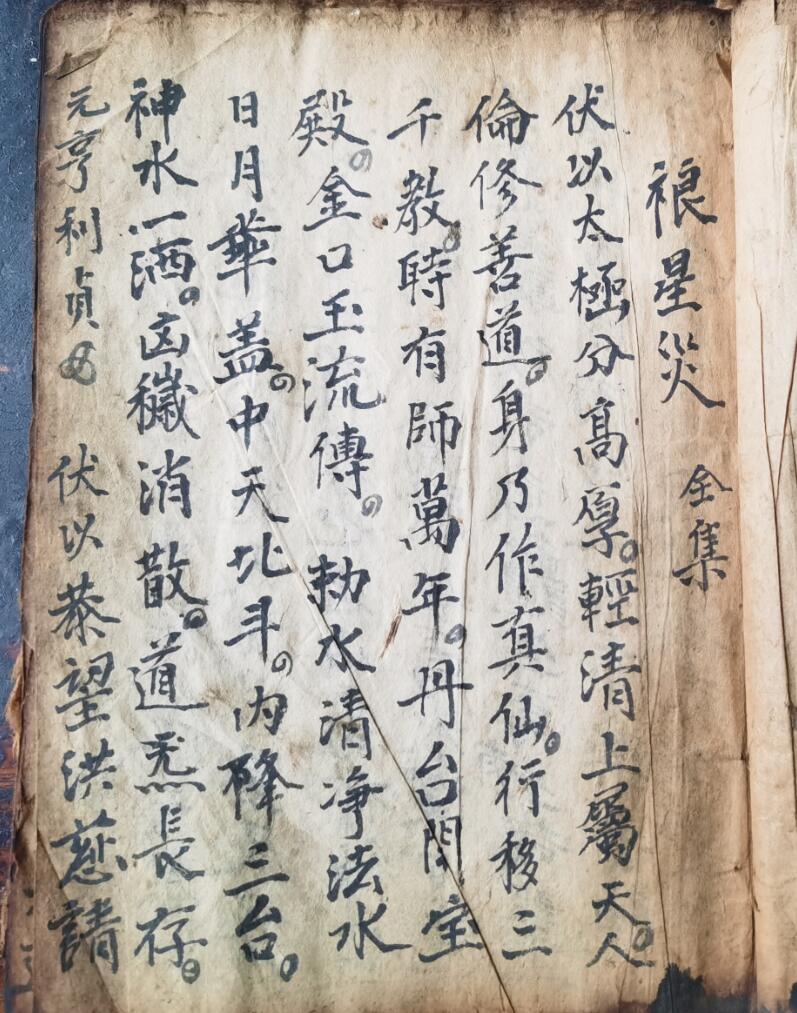 禳星災 全集
伏以太極分高厚。輕清上屬天人。
倫修善道。身乃作真仙。行移三
千教。時有師萬年。丹台開宝
殿。金口玉流傳。勅水清净法水
日月華盖。中天北斗。内降三台。
神水一洒。凶穢消散。道炁長存。
元亨利貞 伏以恭望洪慈請